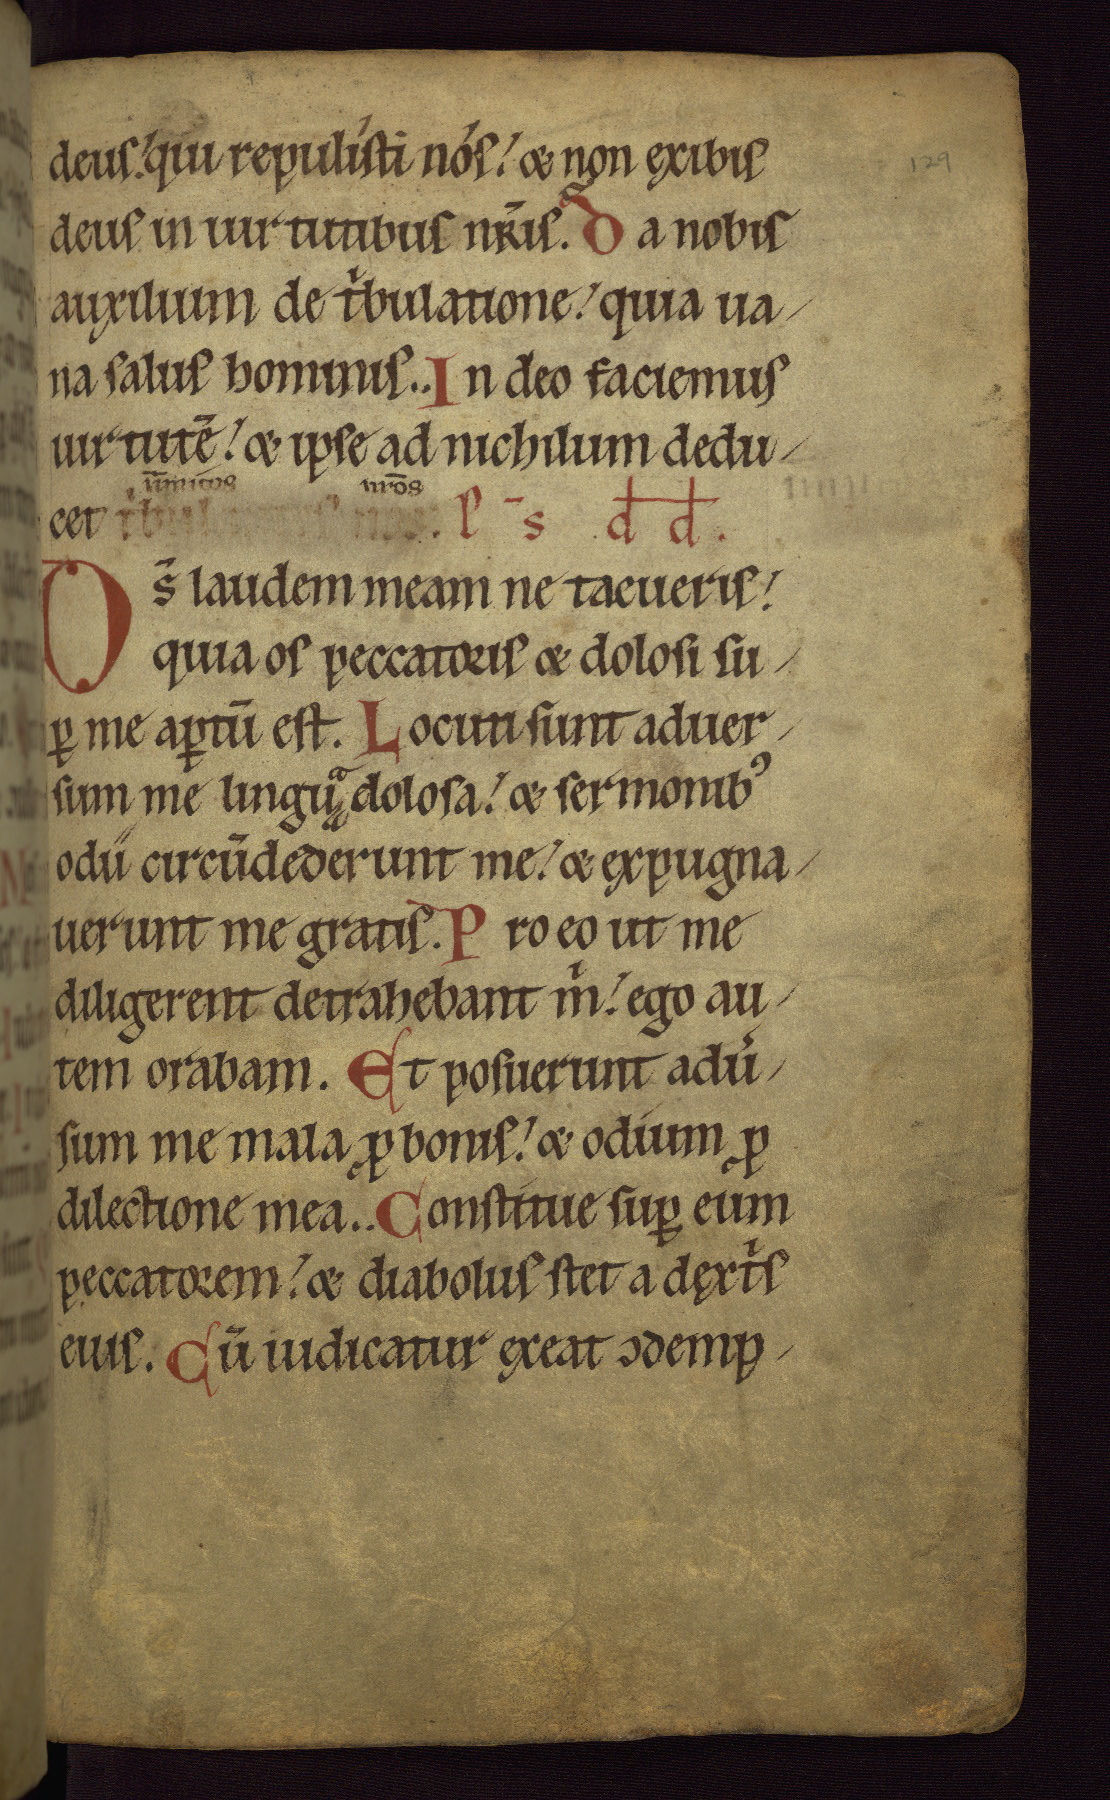 129
deus!qui repulisti nós! & non exibis
deus in uirtutibus nr̄is. D a nobis
auxilium de tⁱbulatione! quia ua
na salus hominis.. I n deo faciemus
uirtutē! & ipse ad nichilum dedu
inimicos nr̄os
cet . p̄s d̄d̄.
D s̄ laudem meam ne tacueris!
quia os peccatoris & dolosi su
ꝑ me aꝑtū est. L ocuti sunt aduer
sum me linguͣ dolosa! & sermonibꝰ
odii circūdederunt me! & expugna
uerunt me gratis. P ro eo ut me
diligerent detrahebant mⁱ! ego au
tem orabam. Et posuerunt adu̾
sum me mala ꝓ bonis! & odium ꝓ
dilectione mea.. Constitue suꝑ eum
peccatorem! & diabolus stet a dextⁱs
eius. Cū iudicatur exeat ↄdemp